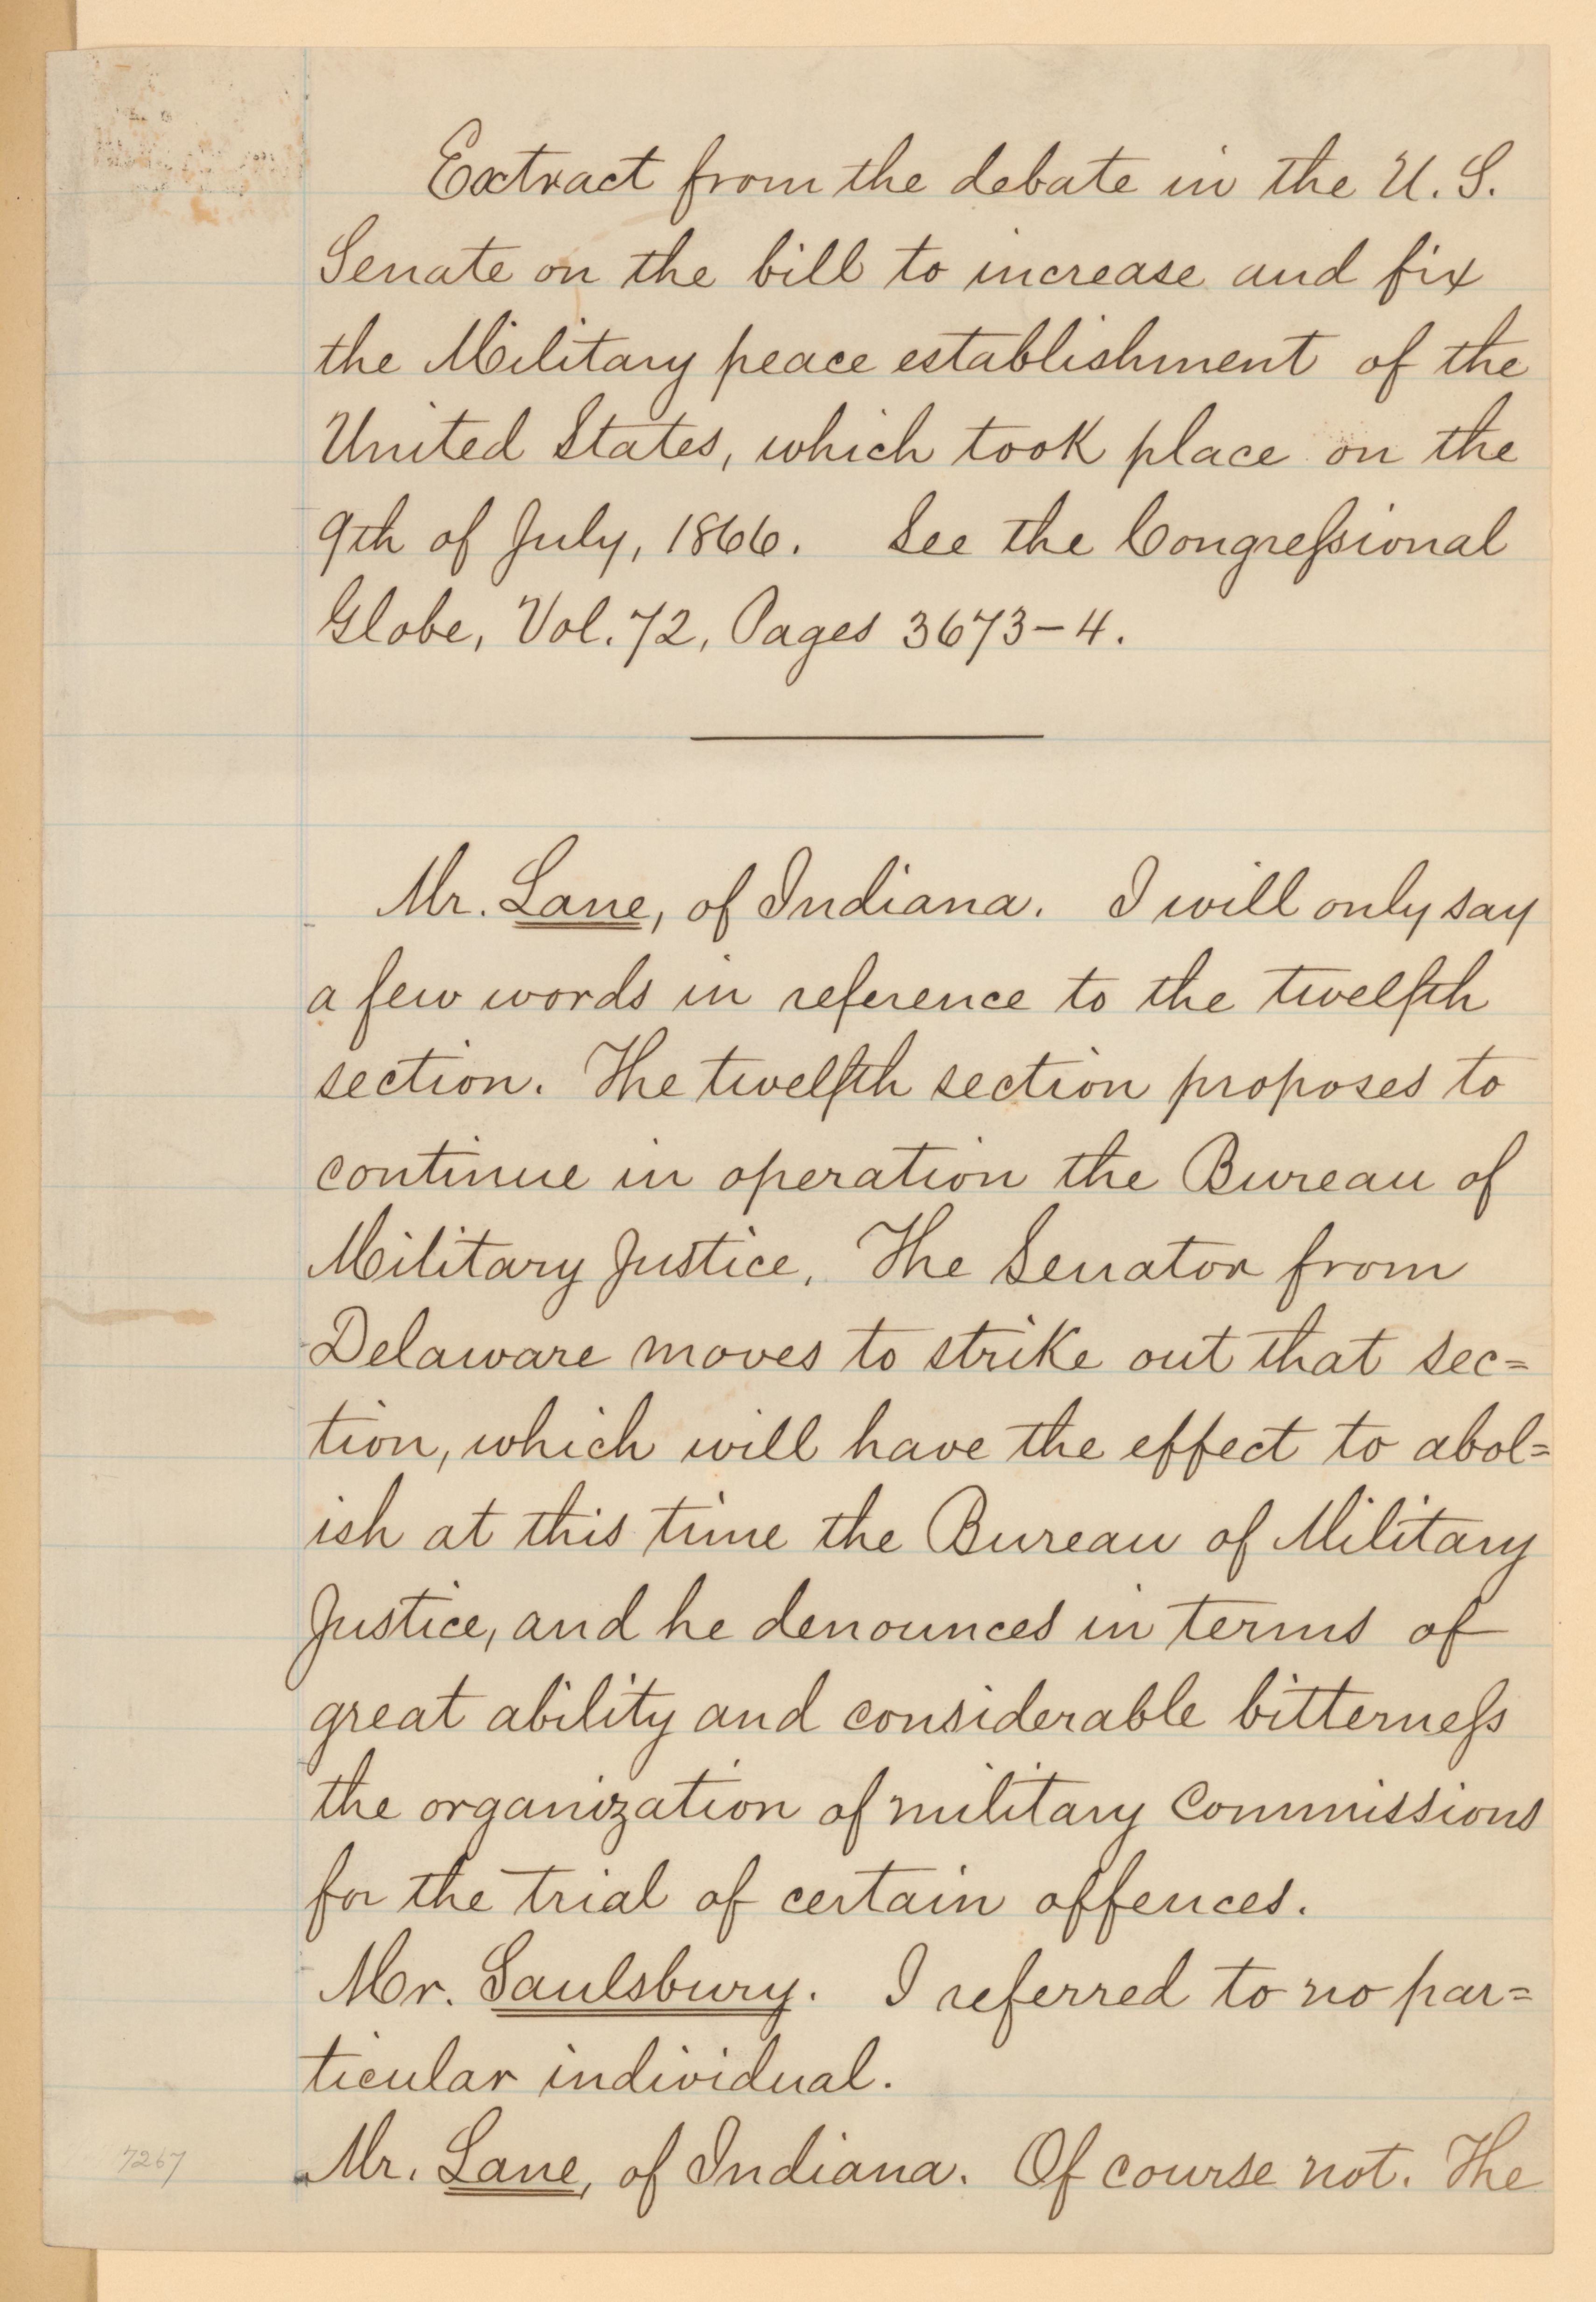 Extract from the debate in the U. S.
Senate on the bill to increase and fix
the Military peace establishment of the
United States, which took place on the
9th of July, 1866. See the Congreſsional
Globe, Vol. 72, Pages 3673-4.
Mr. Lane, of Indiana. I will only say
a few words in reference to the twelfth
section. The twelfth section proposes to
continue in operation the Bureau of
Military Justice. The Senator from
Delaware moves to strike out that sec=
tion, which will have the effect to abol=
ish at this time the Bureau of Military
Justice, and he denounces in terms of
great ability and considerable bitterneſs
the organization of military Commissions
for the trial of certain offences.
Mr. Saulsbury. I referred to no par=
ticular individual.
Mr. Lane, of Indiana. Of course not. The
7267